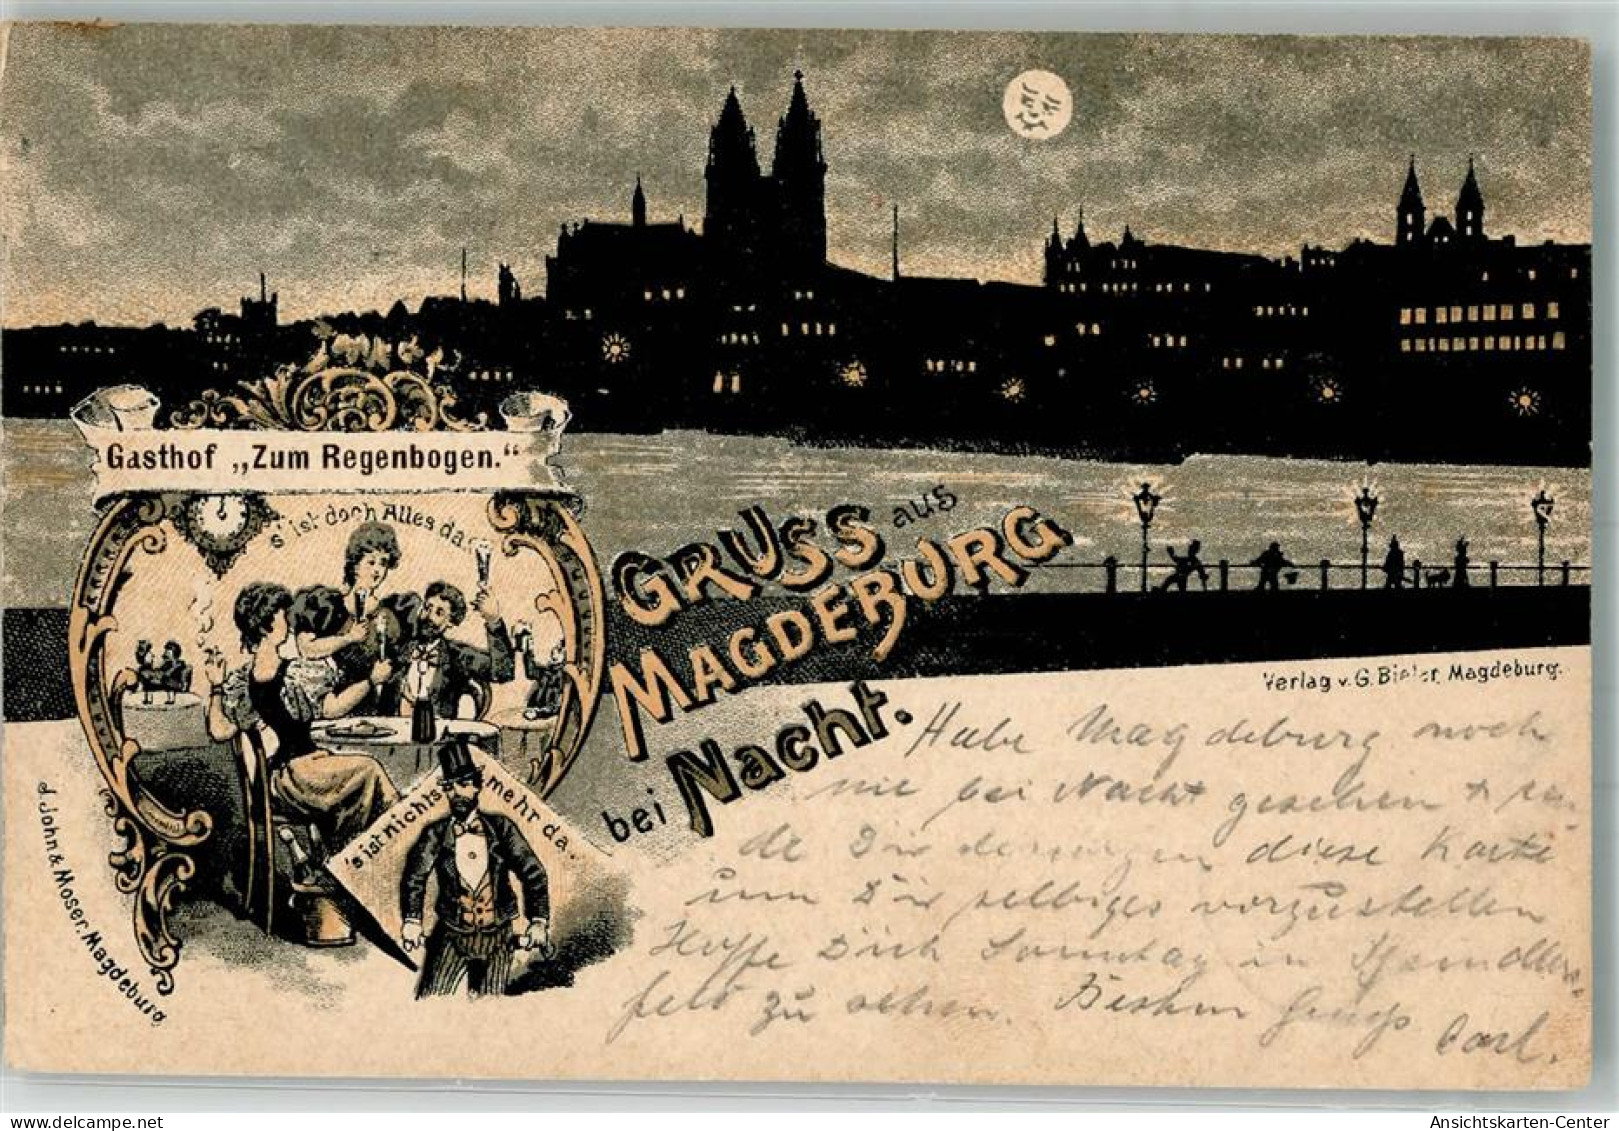 Gasthof „Zum Regenbogen.“
s'ist doch Alles da.
GRUSS aus
MAGDEBURG
bei Nacht.
's ist nichts mehr da.
J. John & Moser, Magdeburg
Verlag v. G. Bieler, Magdeburg.
Habe Magdeburg noch
nie bei Nacht gesehen + sen-
de Dir deswegen diese Karte
um Dir selbiges vorzustellen
Hoffe Dich Sonntag in
feld zu sehen. Besten Gruß Carl.
Ansichtskarten-Center